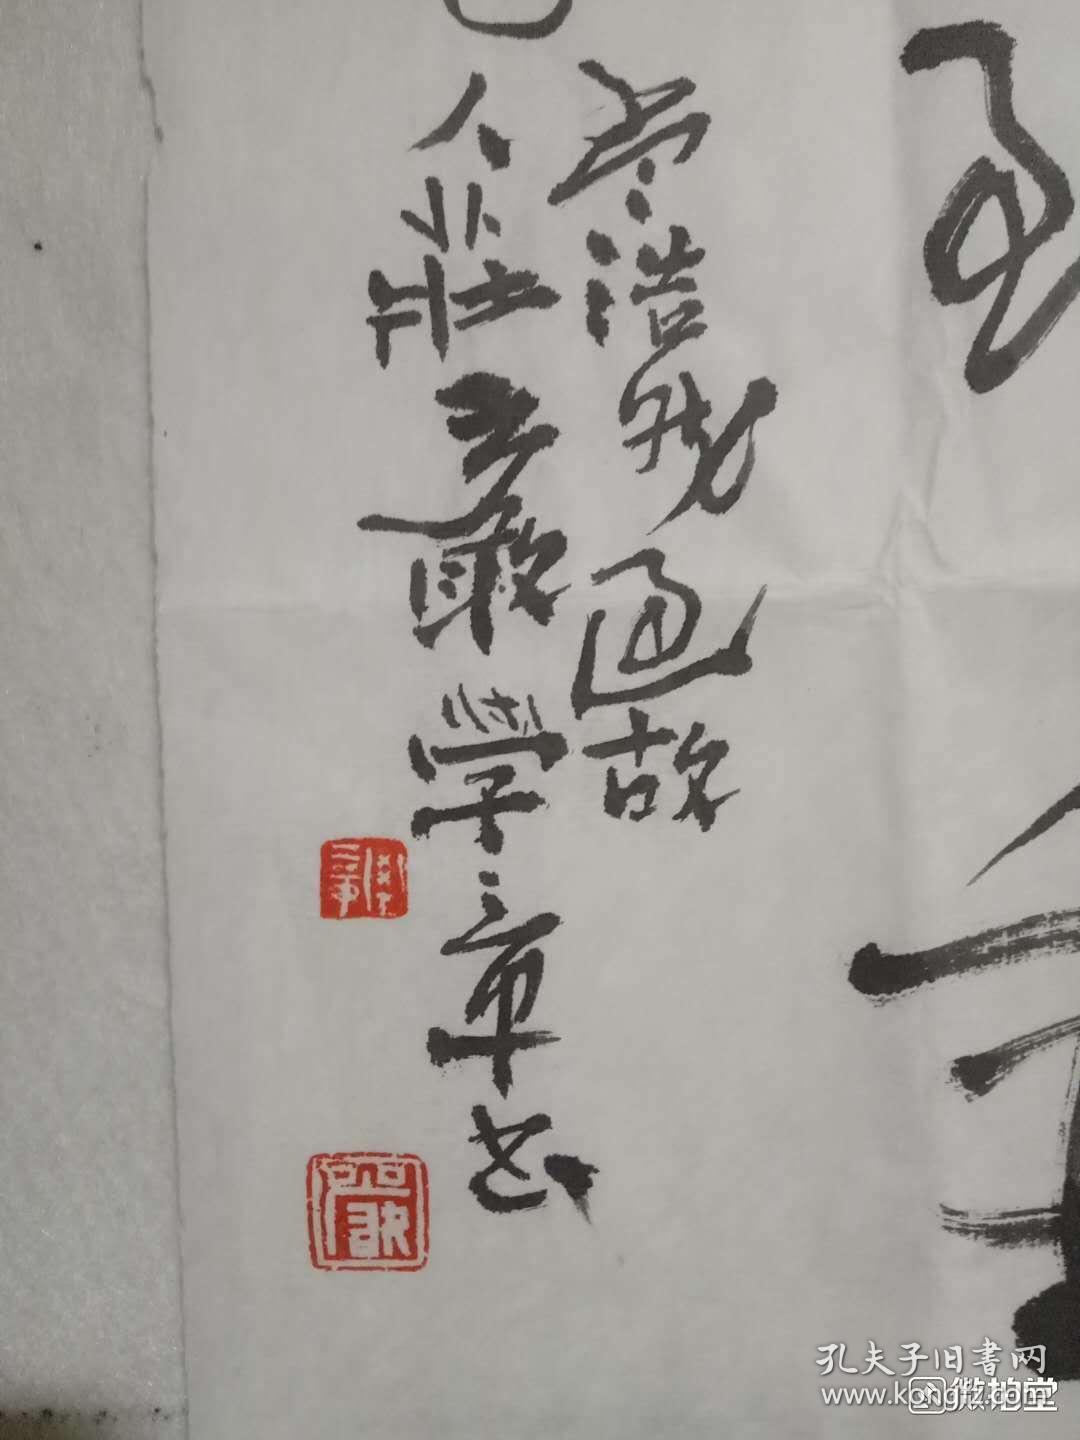 孟浩然過故
人莊嚴學章书
嚴
孔夫子旧書网
www.kongfz.com
微拍堂